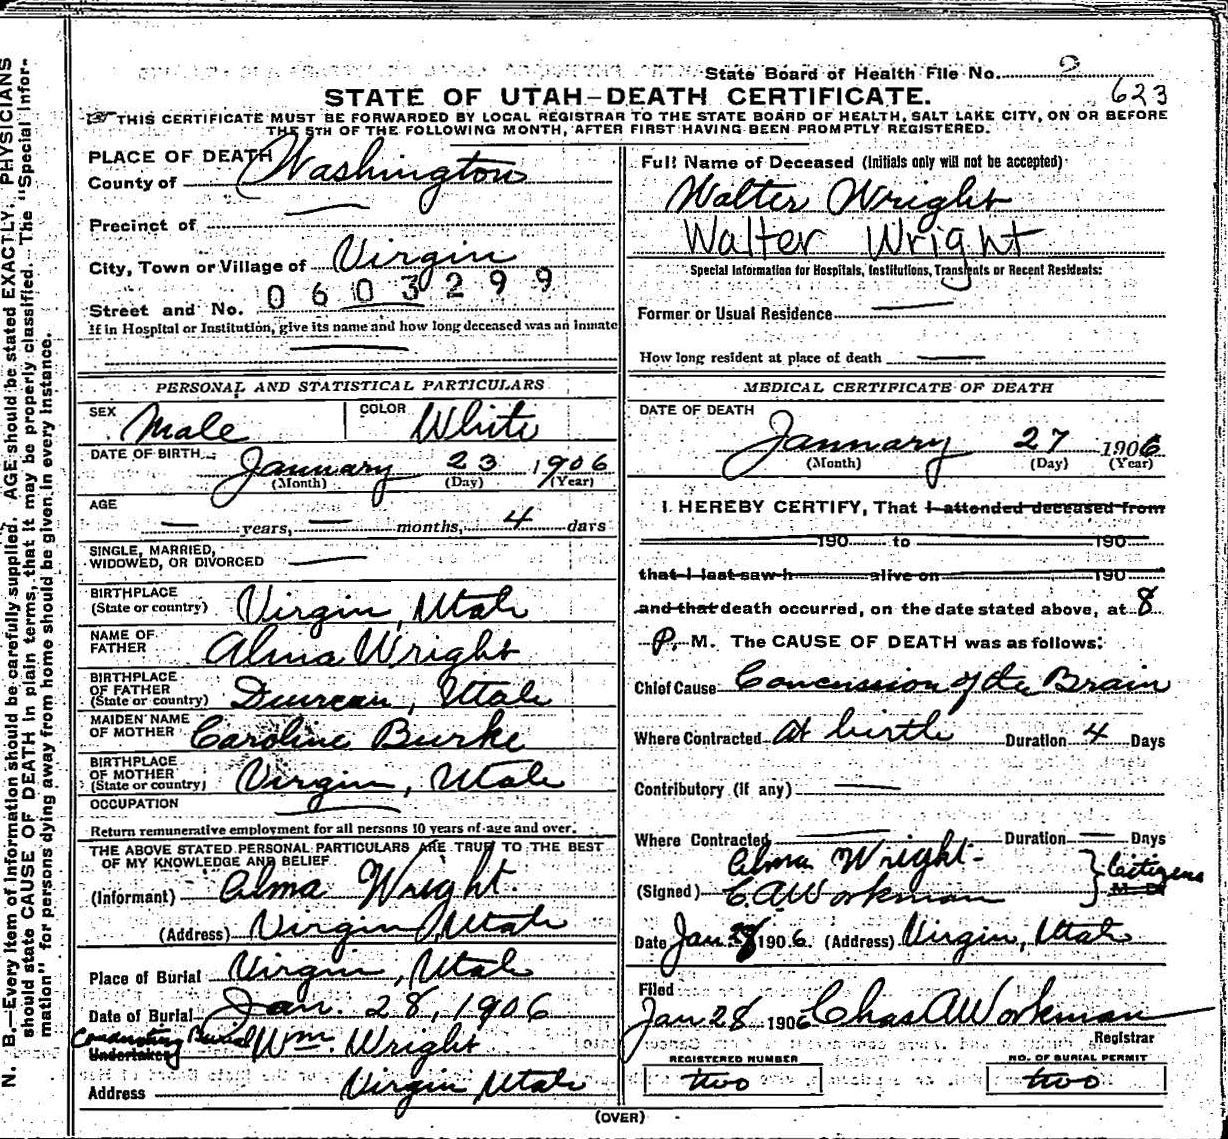 N. B.—Every item of information should be carefully supplied. AGE should be stated EXACTLY. PHYSICIANS
should state CAUSE OF DEATH in plain terms, that it may be properly classified. The "Special Infor-
mation" for persons dying away from home should be given in every instance.
State Board of Health File No. 2
STATE OF UTAH—DEATH CERTIFICATE.
623
THIS CERTIFICATE MUST BE FORWARDED BY LOCAL REGISTRAR TO THE STATE BOARD OF HEALTH, SALT LAKE CITY, ON OR BEFORE
THE 5TH OF THE FOLLOWING MONTH, AFTER FIRST HAVING BEEN PROMPTLY REGISTERED.
PLACE OF DEATH
County of Washington
Precinct of
City, Town or Village of Virgin
0603299
Street and No.
If in Hospital or Institution, give its name and how long deceased was an inmate
PERSONAL AND STATISTICAL PARTICULARS
SEX Male COLOR White
DATE OF BIRTH January 23 1906
(Month) (Day) (Year)
AGE
— years, — months, 4 days
SINGLE, MARRIED,
WIDOWED, OR DIVORCED —
BIRTHPLACE
(State or country) Virgin, Utah
NAME OF
FATHER Alma Wright
BIRTHPLACE
OF FATHER
(State or country) Duncan, Utah
MAIDEN NAME
OF MOTHER Caroline Burke
BIRTHPLACE
OF MOTHER
(State or country) Virgin, Utah
OCCUPATION —
Return remunerative employment for all persons 10 years of age and over.
THE ABOVE STATED PERSONAL PARTICULARS ARE TRUE TO THE BEST
OF MY KNOWLEDGE AND BELIEF
(Informant) Alma Wright.
(Address) Virgin, Utah
Place of Burial Virgin, Utah
Date of Burial Jan. 28, 1906
Conducting Burial
Undertaker Wm. Wright
Address Virgin, Utah
Full Name of Deceased (Initials only will not be accepted)
Walter Wright
Walter Wright
Special Information for Hospitals, Institutions, Transients or Recent Residents:
Former or Usual Residence —
How long resident at place of death —
MEDICAL CERTIFICATE OF DEATH
DATE OF DEATH
January 27 1906
(Month) (Day) (Year)
I HEREBY CERTIFY, That I attended deceased from
190 to 190
that I last saw h alive on 190
and that death occurred, on the date stated above, at 8
P. M. The CAUSE OF DEATH was as follows:
Chief Cause Concussion of the Brain
Where Contracted At birth Duration 4 Days
Contributory (if any) —
Where Contracted — Duration — Days
Alma Wright-
(Signed) C.A. Workman } Citizens
M. D.
Date Jan 28 1906. (Address) Virgin, Utah
Filed
Jan 28 1906 Chas A Workman
Registrar
REGISTERED NUMBER NO. OF BURIAL PERMIT
two two
(OVER)